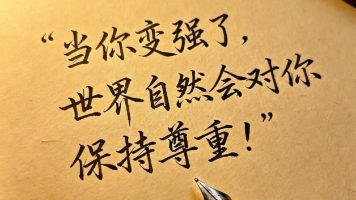 “当你变强了，
世界自然会对你
保持尊重！”